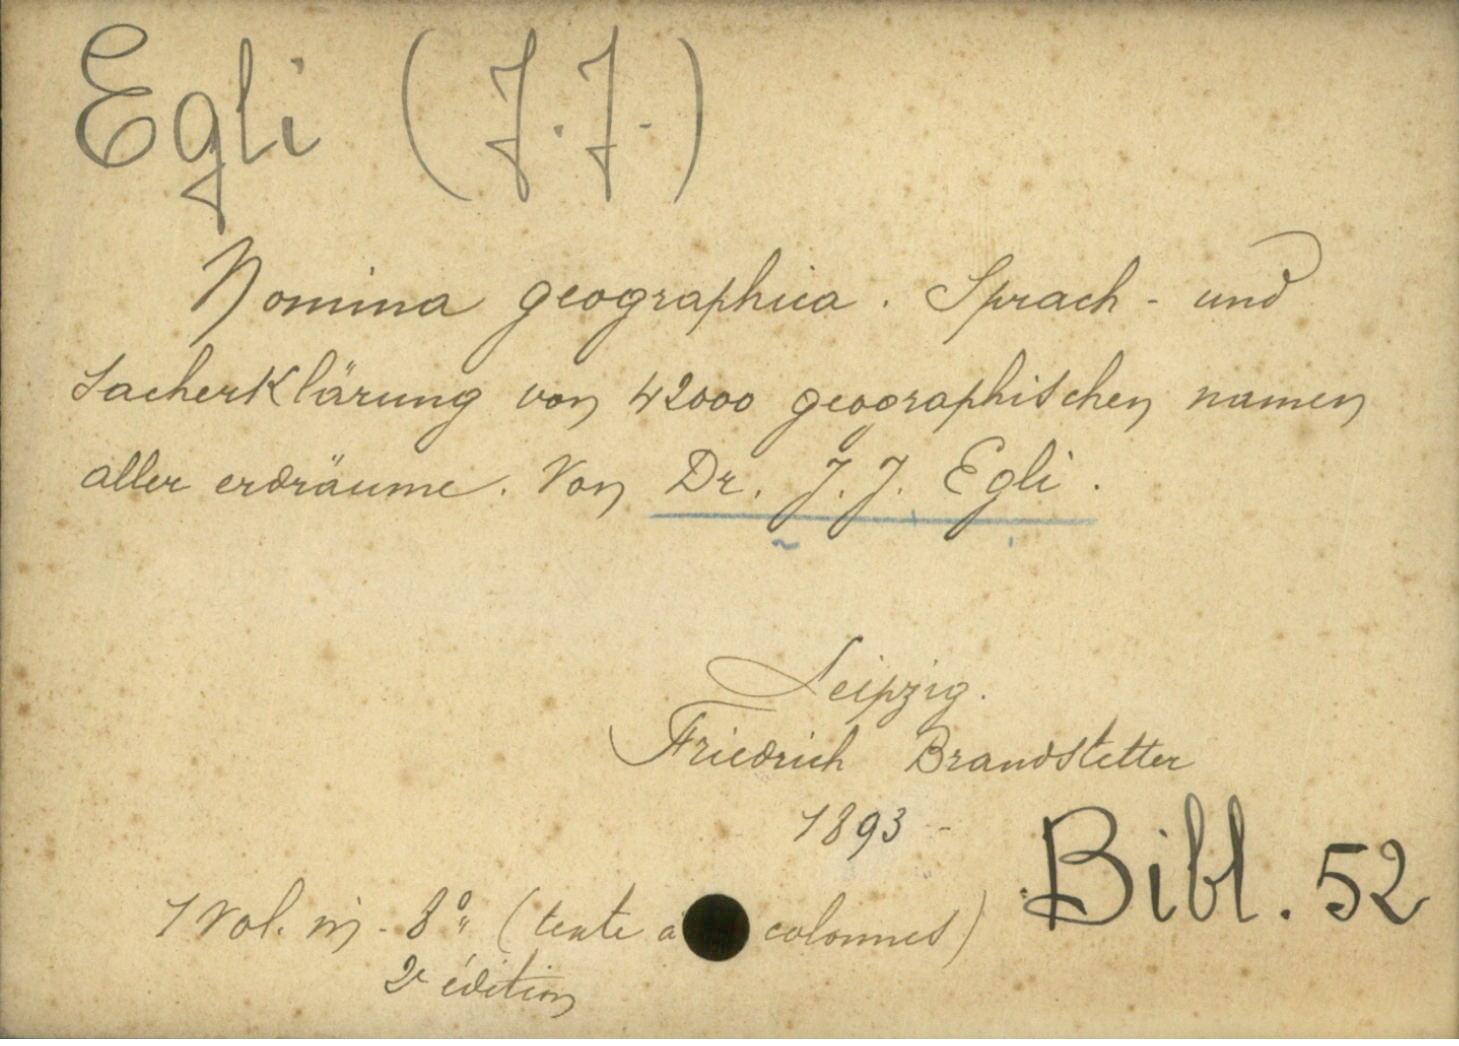 Egli (J. J.)
Nomina geographica. Sprach- und
Sacherklärung von 42000 geographischen namen
aller erdräume. Von Dr. J. J. Egli.
Leipzig.
Friedrich Brandstetter
1893 -
Bibl. 52
1 vol. in-8° (texte à colonnes)
2e édition